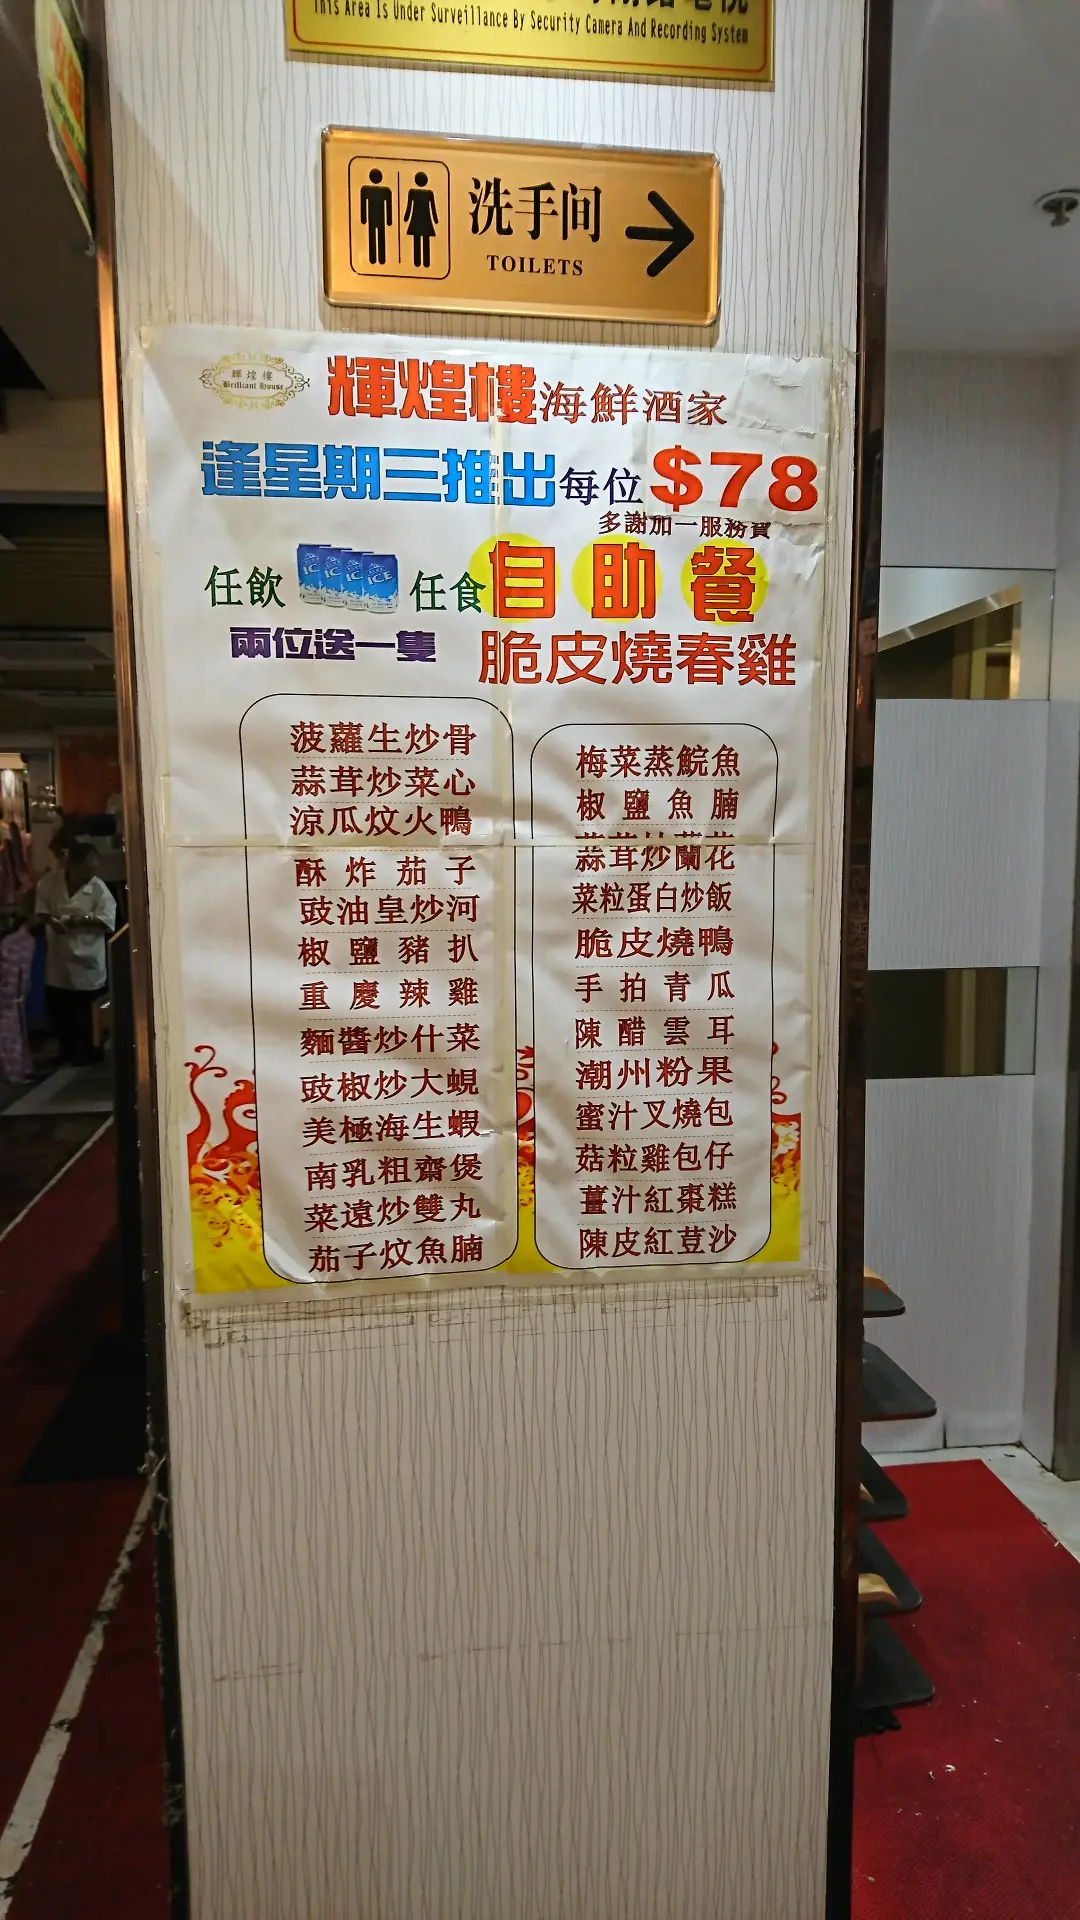 This Area Is Under Surveillance By Security Camera And Recording System
洗手间
TOILETS
輝煌樓
Brilliant House
輝煌樓海鮮酒家
逢星期三推出每位$78
多謝加一服務費
任飲 ICE 任食自助餐
兩位送一隻 脆皮燒春雞
菠蘿生炒骨
蒜茸炒菜心
涼瓜炆火鴨
酥炸茄子
豉油皇炒河
椒鹽豬扒
重慶辣雞
麵醬炒什菜
豉椒炒大蜆
美極海生蝦
南乳粗齋煲
菜遠炒雙丸
茄子炆魚腩
梅菜蒸鯇魚
椒鹽魚腩
蒜茸炒蘭花
菜粒蛋白炒飯
脆皮燒鴨
手拍青瓜
陳醋雲耳
潮州粉果
蜜汁叉燒包
菇粒雞包仔
薑汁紅棗糕
陳皮紅荳沙